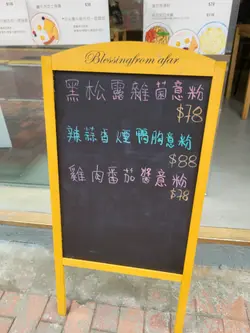 Blessingfrom afar
黑松露雜菌意粉
$78
辣蒜香煙鴨胸意粉
$88
雞肉番茄醬意粉
$78